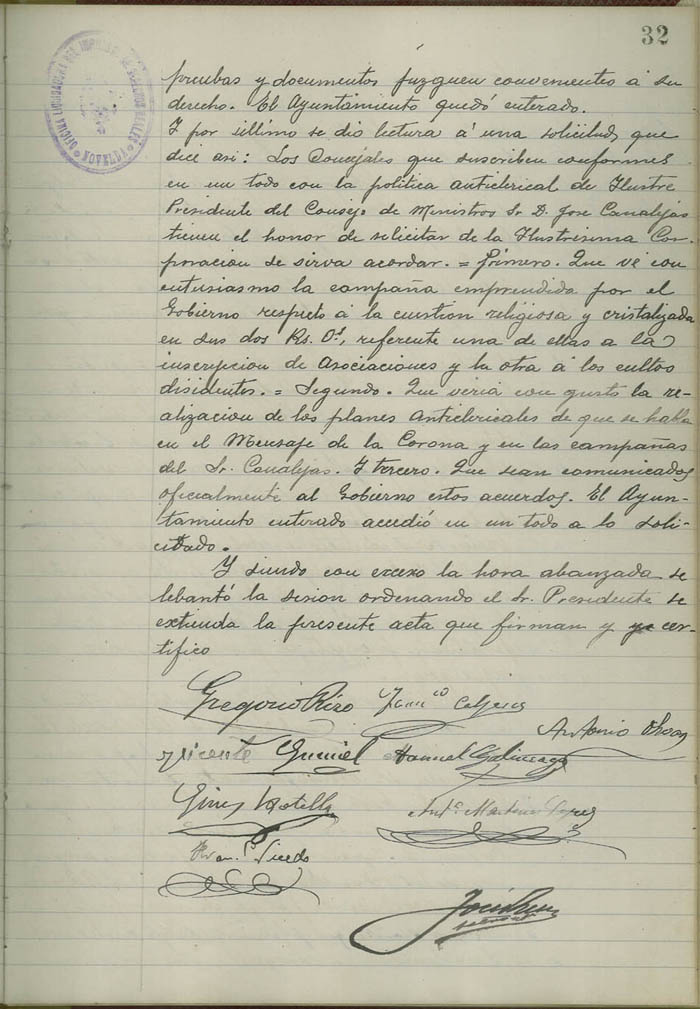 32
OFICINA LIQUIDADORA DEL IMPUESTO DE DERECHOS REALES
NOVELDA
pruebas y documentos juzguen convenientes á su
derecho. El Ayuntamiento quedó enterado.
Y por último se dio lectura á una solicitud que
dice asi: Los Concejales que suscriben conformes
en un todo con la politica anticlerical de Ilustre
Presidente del Consejo de Ministros Sr. D. Jose Canalejas
tienen el honor de solicitar de la Ilustrisima Cor-
poracion se sirva acordar. = Primero. Que vé con
entusiasmo la campaña emprendida por el
Gobierno respeto á la cuestion religiosa y cristalizada
en sus dos Rs. Os, referente una de ellas a la
inscrepcion de Asociaciones y la otra á los cultos
disidentes. = Segundo. Que veria con gusto la re-
alizacion de los planes anticlericales de que se habla
en el Mensaje de la Corona y en las campañas
del Sr. Canalejas. Y tercero. Que sean comunicados
oficialmente al Gobierno estos acuerdos. El Ayun-
tamiento enterado accedió en un todo a lo soli-
citado.
Y siendo con excexo la hora abanzada se
lebantó la sesion ordenando el Sr. Presidente se
extienda la presente acta que firman y yo cer-
tifico
Gregorio
Antonio
Vicente Manuel
Gines
Antº Martinez